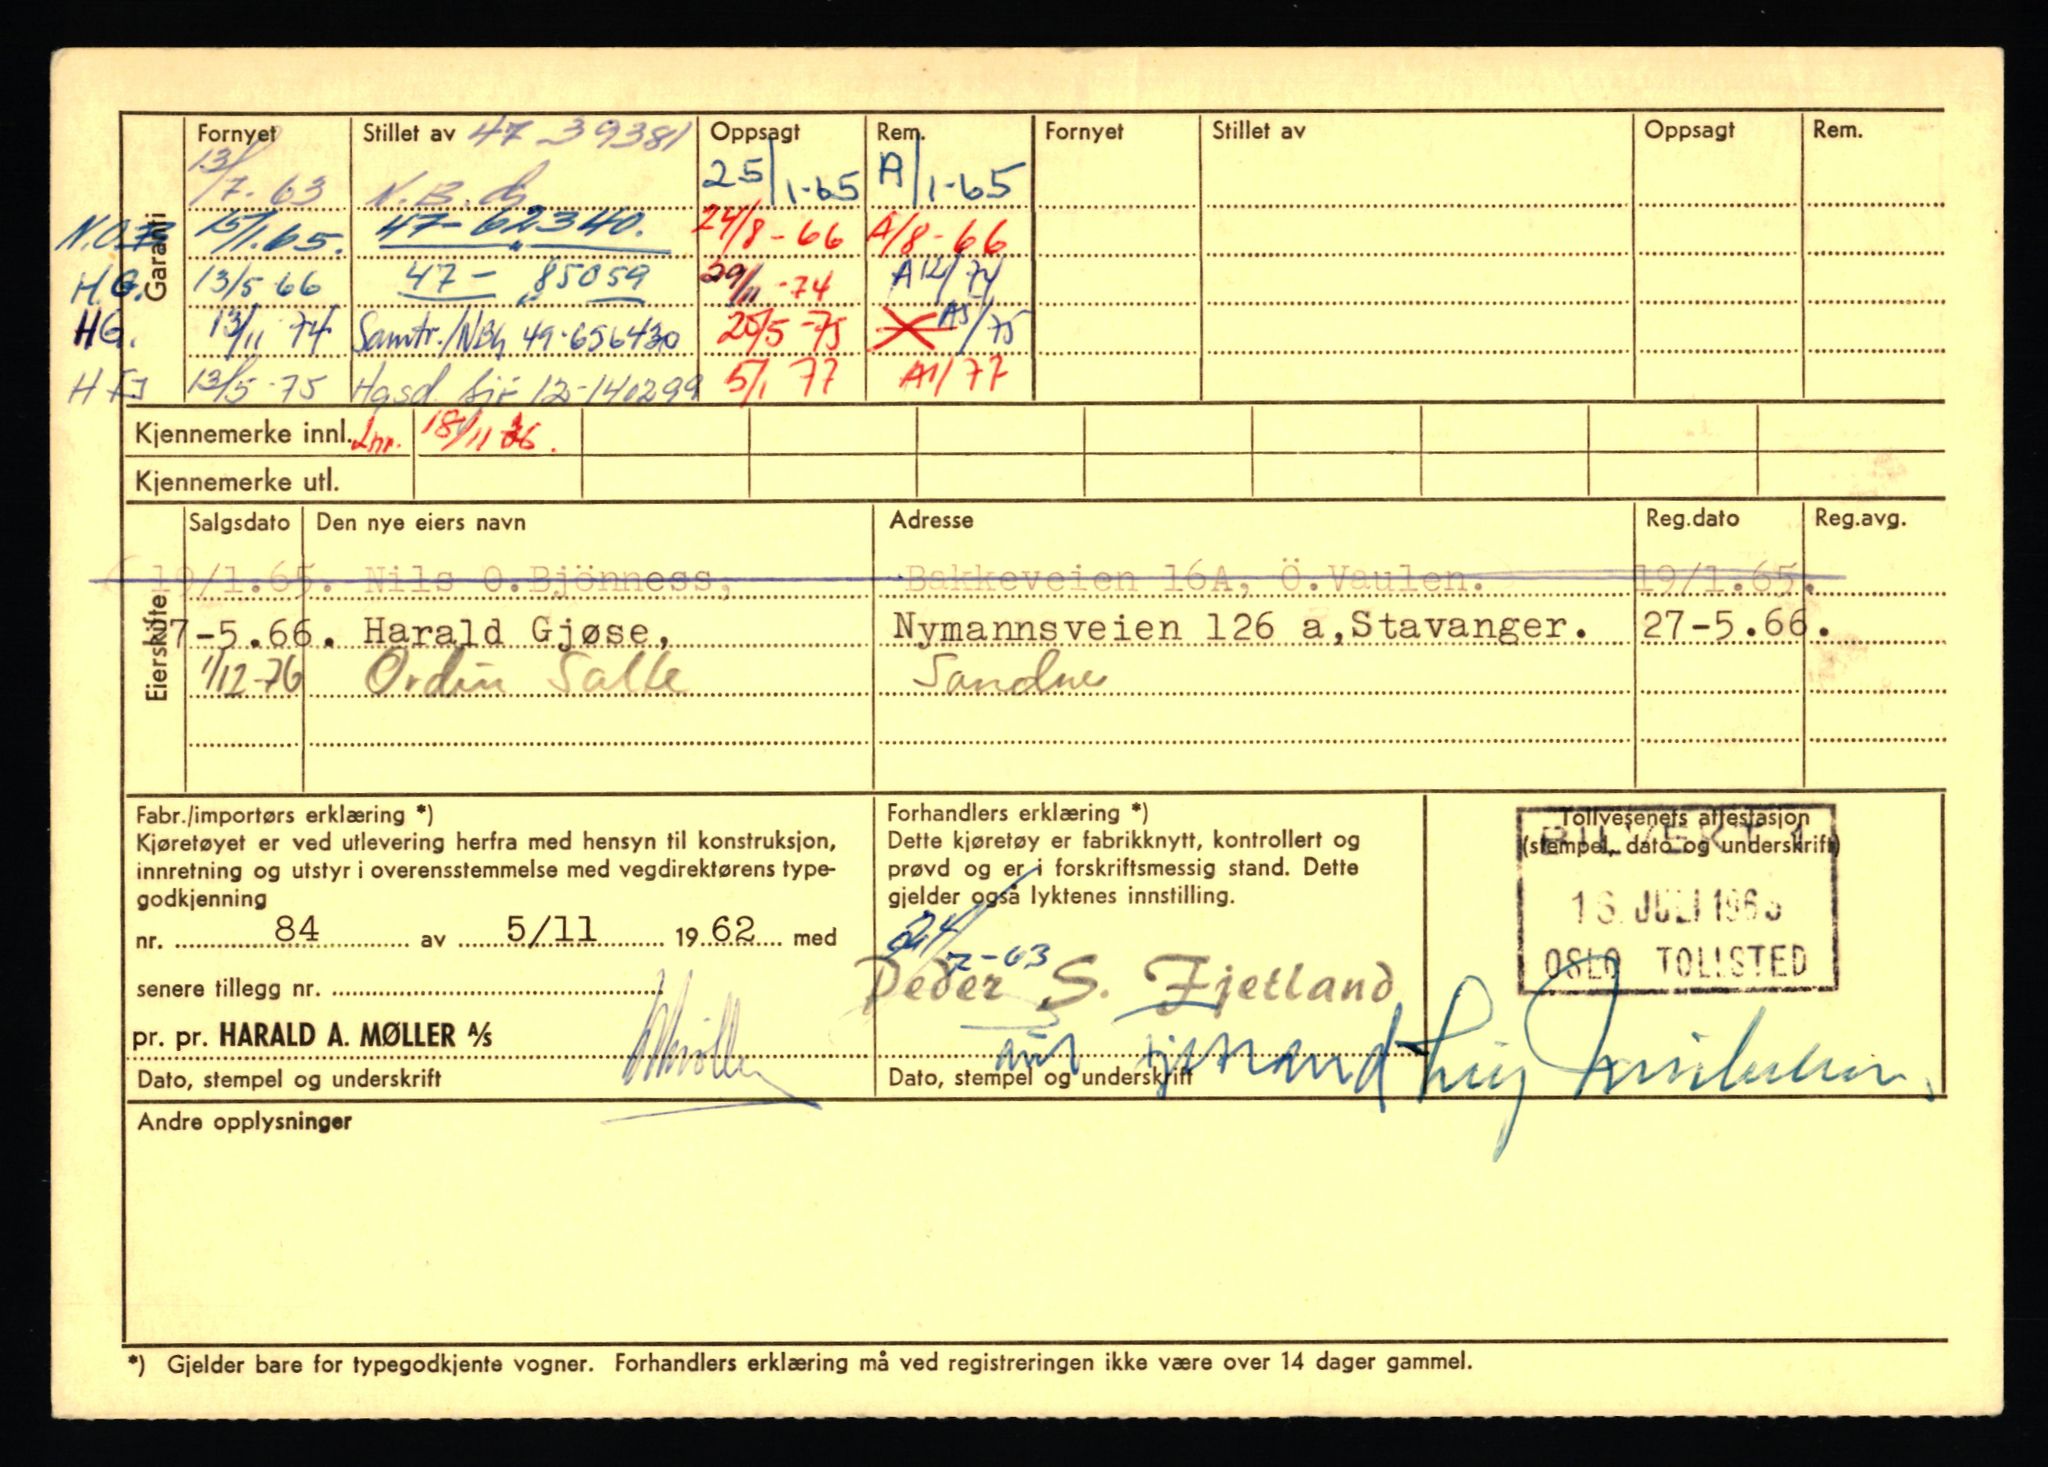 Garanti
Fornyet Stillet av 47-39381 Oppsagt Rem. Fornyet Stillet av Oppsagt Rem.
13/7-63 N.B. 25/1-65 A/1-65
15/1.65. 47-62340. 24/8-66 A/8-66
H.G. 13/5 66 47- 85059 29/11-74 A12/74
HG. 13/11 74 Samtr./NBh 49-656430 20/5-75 A5/75
13/5-75 12-140299 5/1 77 A1/77
Kjennemerke innl. Inn. 18/11
Kjennemerke utl.
Eierskifte
Salgsdato Den nye eiers navn Adresse Reg.dato Reg.avg.
19/1.65. Nils O.Bjönness, Bakkeveien 16A, Ö.Vaulen. 19/1.65.
7-5.66. Harald Gjøse, Nymannsveien 126 a,Stavanger. 27-5.66.
1/12-76 Sandnes
Fabr./importørs erklæring *)
Kjøretøyet er ved utlevering herfra med hensyn til konstruksjon,
innretning og utstyr i overensstemmelse med vegdirektørens type-
godkjenning
nr. 84 av 5/11 1962 med
senere tillegg nr.
pr. pr. HARALD A. MØLLER A/S
Dato, stempel og underskrift
Forhandlers erklæring *)
Dette kjøretøy er fabrikknytt, kontrollert og
prøvd og er i forskriftsmessig stand. Dette
gjelder også lyktenes innstilling.
24/7-63
Peder S. Fjetland
Dato, stempel og underskrift
Tollvesenets attestasjon
(stempel, dato og underskrift)
BILVERK
16. JULI 1963
OSLO TOLLSTED
Andre opplysninger
*) Gjelder bare for typegodkjente vogner. Forhandlers erklæring må ved registreringen ikke være over 14 dager gammel.